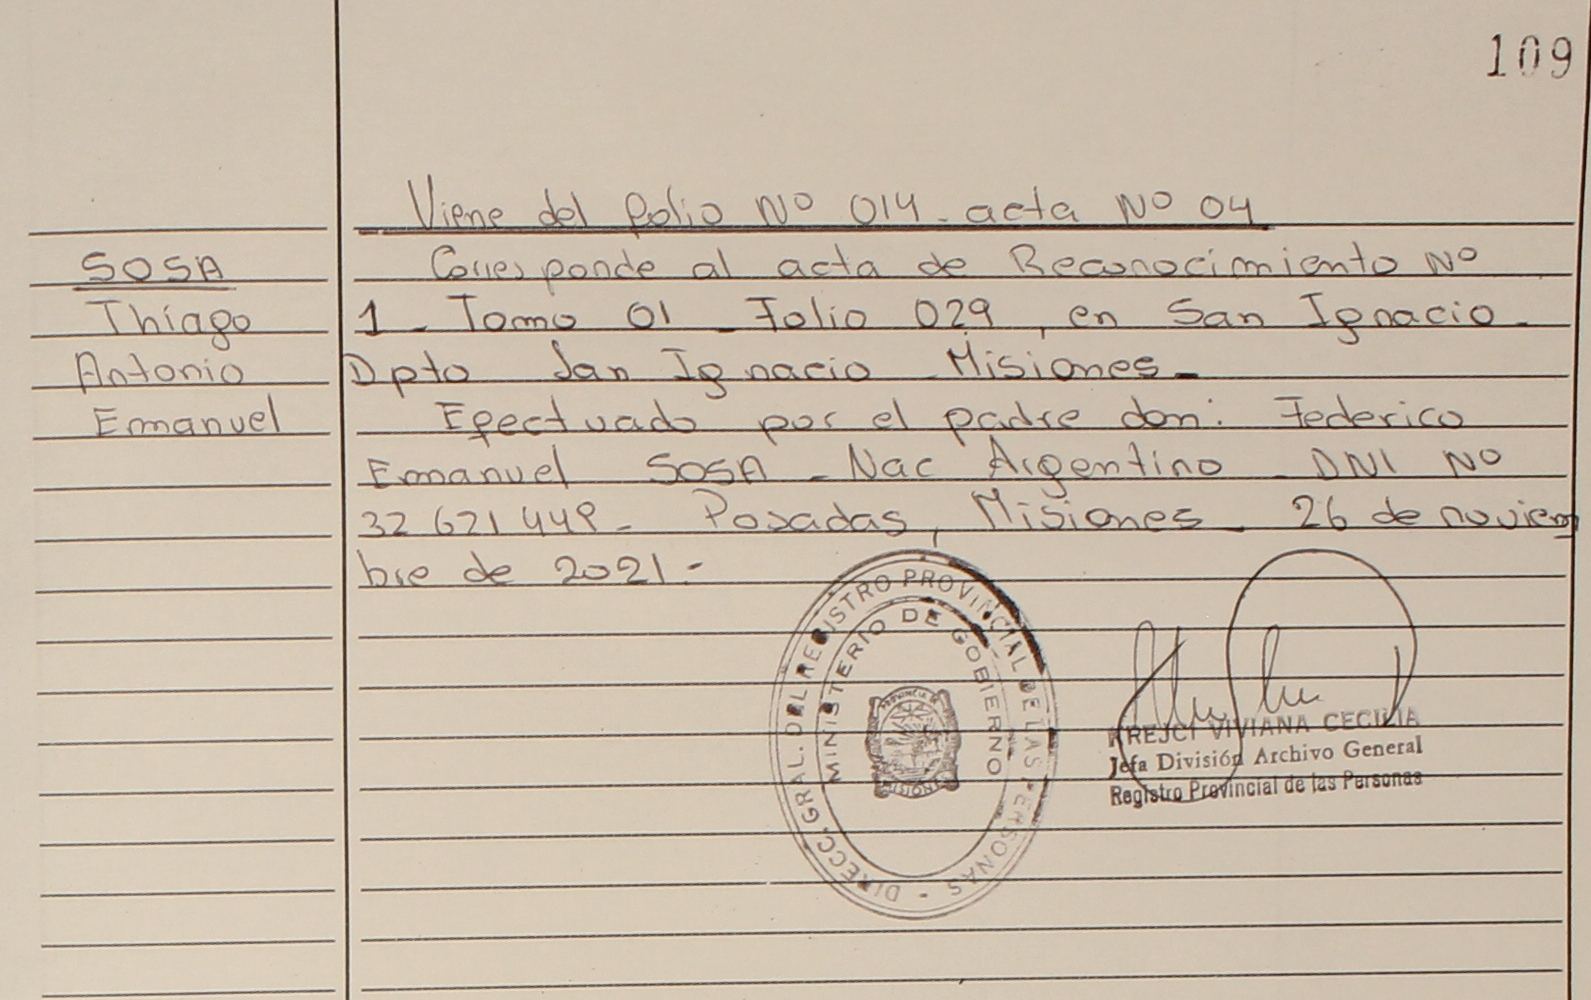 109
Viene del folio Nº 014 - acta Nº 04
SOSA
Thiago
Antonio
Emanuel
Corresponde al acta de Reconocimiento Nº
1 - Tomo 01 - Folio 029, en San Ignacio -
Dpto San Ignacio - Misiones -
Efectuado por el padre don: Federico
Emanuel SOSA - Nac Argentino - DNI Nº
32 621 448 - Posadas, Misiones - 26 de noviem
bre de 2021.-
DIRECC. GRAL. DEL REGISTRO PROVINCIAL DE LAS PERSONAS -
MINISTERIO DE GOBIERNO
PROVINCIA DE
MISIONES
KREJCI VIVIANA CECILIA
Jefa División Archivo General
Registro Provincial de las Personas